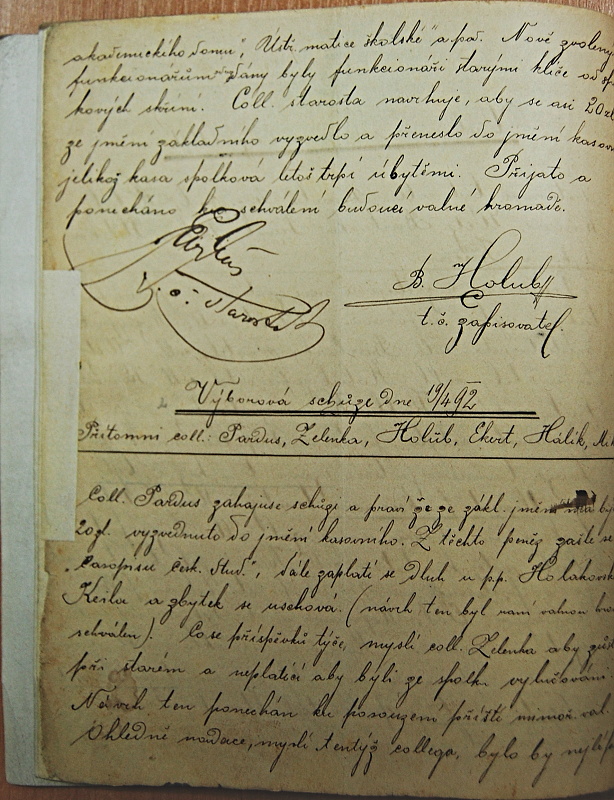 akademického domu", "Ústř. matice školské" a pod. Nově zvoleným
funkcionářům dány byly funkcionáři starými klíče od
kových skříní. Coll. starosta navrhuje, aby se asi 20 zl
ze jmění základního vyzvedlo a přeneslo do jmění kasov
jelikož kasa spolková letos trpí úbytěmi. Přijato a
ponecháno ku schválení budoucí valné hromadě.
t. č. starosta
B. Holub
t. č. zapisovatel.
Výborová schůze dne 19/4 92
Přítomni coll.: Pardus, Zelenka, Holub, Ekert, Hálik,
Coll. Pardus zahajuje schůzi a praví že ze zákl. jmění
20 zl. vyzvednuto do jmění kasovního. Z těchto peněz zašle se
"Časopisu česk. stud.", dále zaplatí se dluh u p.p. Holakovsk
Keila a zbytek se uschová. (návrh ten byl
schválen). Co se příspěvků týče, myslí coll. Zelenka aby
při starém a neplatící aby byli ze spolku vylučováni
Návrh ten ponechán ku posouzení příští mimoř. val.
Ohledně nadace, myslí tentýž collega, bylo by nejlíp